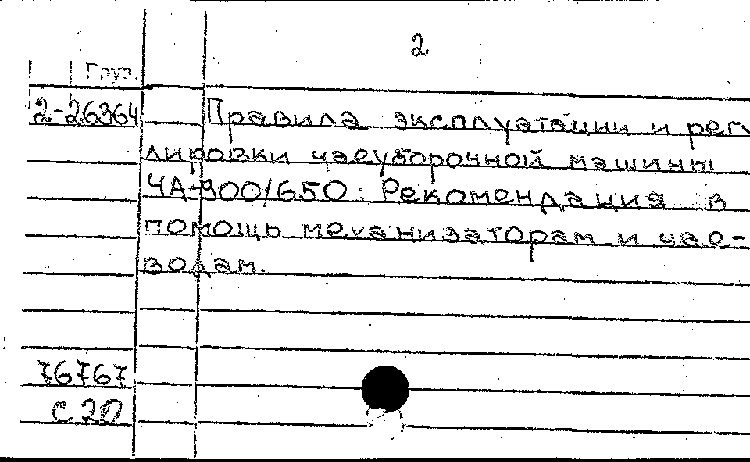 2
Груз.
2-26364 Правила эксплуатации и рег
лировки чаеуборочной машины
ЧА-900/650: Рекомендация в
помощь механизаторам и чае-
водам.
76767
с 20